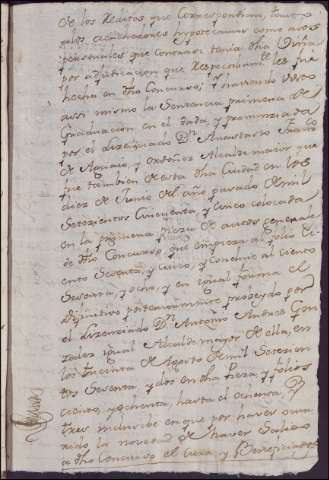 de los Reditos que correspondian, tomo p.r
tales acciones hypotecarias como a los
personales que con
por adjudicacion que respectivam.te les fue
hecha en dho Concurso; y haviendo visto
assi mismo la Sentencia primera de
Graduacion en el dada, y pronunciada
por el Lizenciado D.n Anastasio Franco
y Ordoñez Alcalde mayor que
fue tambien de esta dha Ciudad en los
diez de Junio del año pasado de mil
Setezientos Cincuenta, y Cinco, colocada
en la primera pieza de autos generale
de dho Concurso que empieza al folio Ci
ento Sesenta, y Cinco, y Concluye al ciento
Sesenta, y ocho, y en igual forma el
difinitivo posteriormente proveydo por
el Lizenciado D.n Antonio Andres Gon
zalez igual Alcalde mayor de ella, en
los treinta de Agosto de mil Setezien
tos Sesenta, y dos en dha pieza, y folios
ciento, y ochenta, hasta el ochenta, y
tres inclusive en que por haver ocur
rido la novedad de haver Salido
a dho Concurso el Cura, y Beneficiados